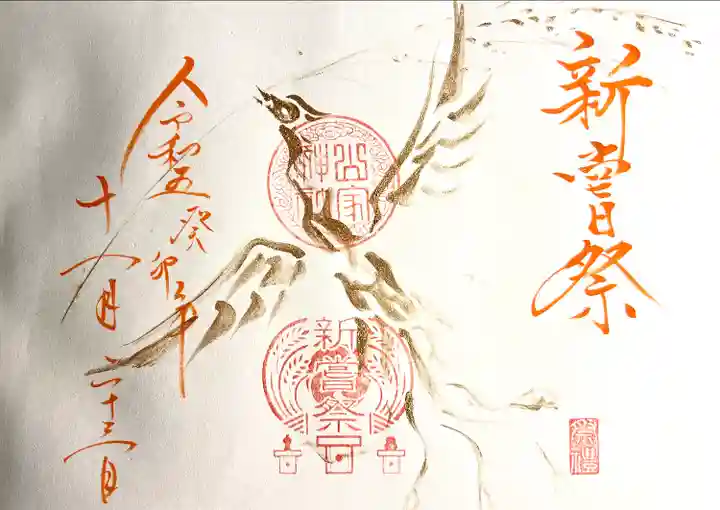 新嘗祭
公家
神社
新嘗祭
祭禮
令和五癸卯年
十一月二十三日